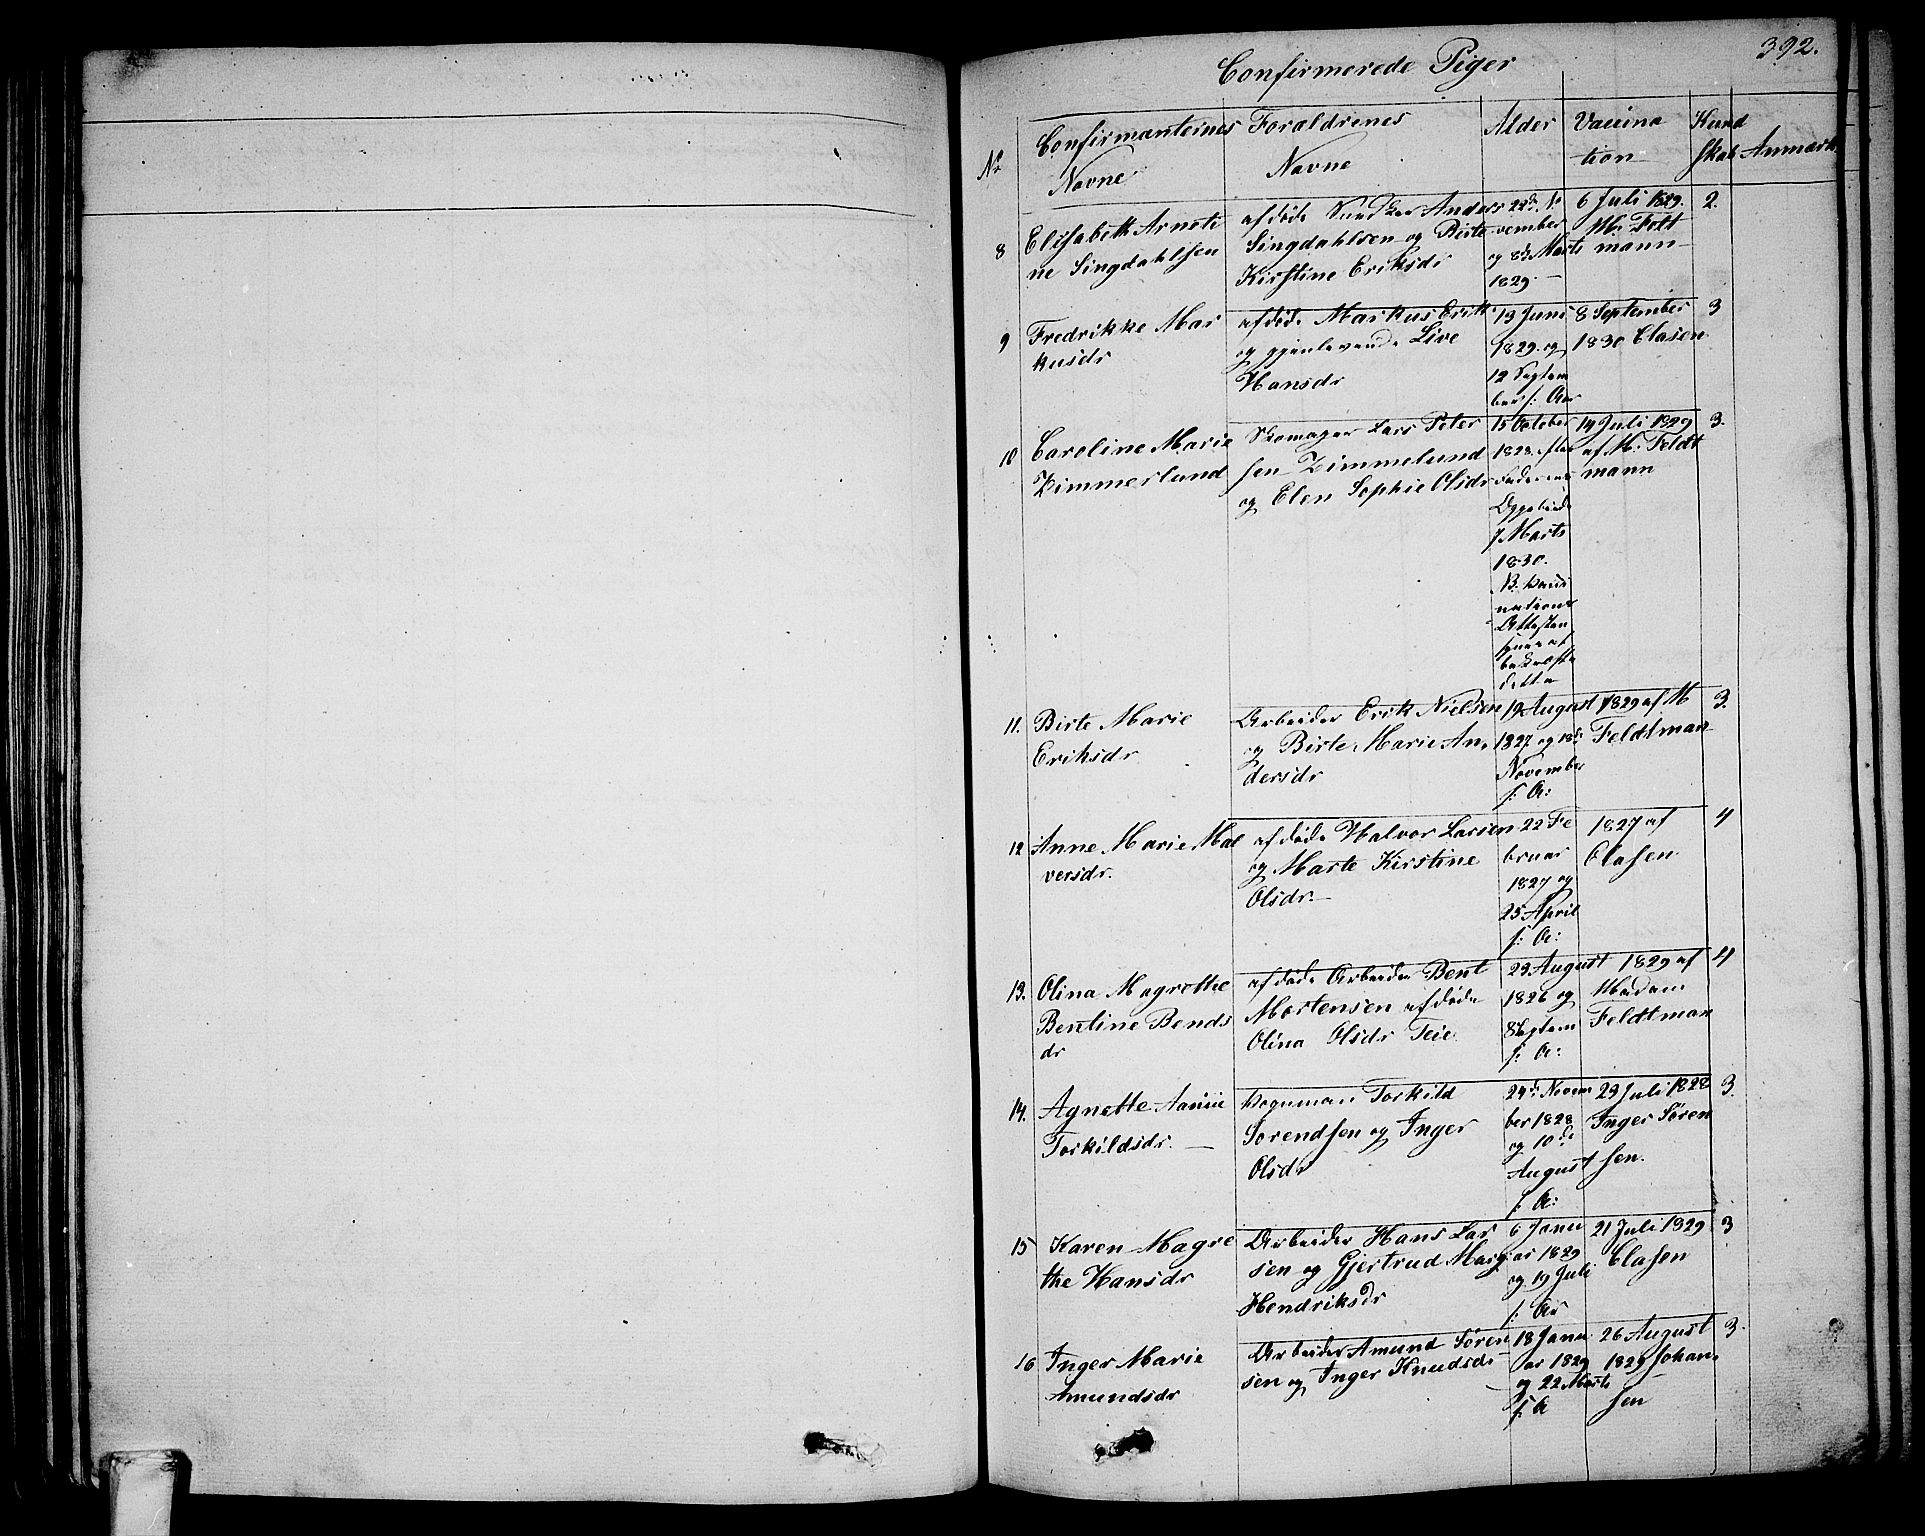 392.
Confirmerede Piger
No
Confirmanternes Navne
Foraldrenes Navne
Alder
Vaccination
Kundskab
Anmærk
8
Elisabeth Arneti
ne Singdahlsen
afdøde Anders
Singdahlsen og Birte
Kirstine Eriksdr
22de No
vember
og 8de Marts
1829.
6 Juli 1829.
M. Felt
mann
2.
9
Fredrikke Mar
kusdr
afdøde Markus Erik
og gjenlevende Live
Hansdr
13 Juni
1829. og
12 Septem
ber s: Aar
8 September
1830 Clasen
3
10
Caroline Marie
Zimmerlund
Skomager Lars Peter
sen Zimmelund
og Elen Sophie Olsdr
15 October
1828. efter
Faderens
Opgivende
7 Marts
1830.
detta
14 Juli 1829
af M. Feldt
mann
3.
11.
Birte Marie
Eriksdr
Arbeider Erik Nielsen
og Birte Marie An,
dersdr
19 August
1827 og 18de
November
s: A:
1829 af M
Feldtman
3.
12
Anne Marie Mal
versdr.
afdøde Halvor Larsen
og Marte Kirstine
Olsdr.
22 Fe
bruar
1827 og
25 April
s: A:
1827 af
Clasen
4
13.
Olina Magrethe
Bentine Bends
dr
afdøde Arbeider Bent
Mortensen afdøde
Olina Olsdr Teie
23 August
1826 og
8 Septem
s: A:
1829 af
Madam
Feldtman
4
14.
Agnette
Torkildsdr.
Vognmand Torkild
Sorendsen og Inger
Olsdr
24de Novem
ber 1828
og 10de
August
s: A:
23 Juli 1828
Inger Søren
sen.
3.
15
Karen Magre
the Hansdr
Arbeider Hans Lar
sen og Gjertrud Marg
Hendriksdr
6 Janu
ar 1829
og 19 Juli
s: Aar
21 Juli 1829
Clasen
3
16
Inger Marie
Amundsdr
Arbeider Amund Søren
sen og Inger Knudsdr
18 Janu
ar 1829
og 22 Marts
s: A
26 August
1829 Johan
sen
3.